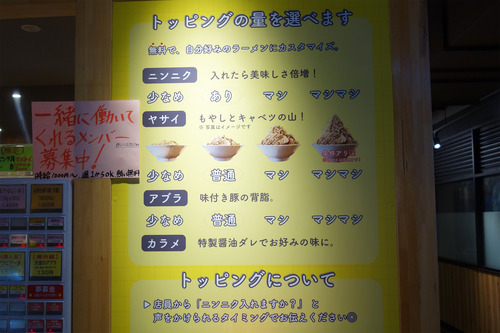 トッピングの量を選べます
無料で、自分好みのラーメンにカスタマイズ。
ニンニク 入れたら美味しさ倍増!
少なめ あり マシ マシマシ
ヤサイ もやしとキャベツの山!
※写真はイメージです
少なめ 普通 マシ マシマシ
アブラ 味付き豚の背脂。
少なめ 普通 マシ マシマシ
カラメ 特製醤油ダレでお好みの味に。
トッピングについて
▶店員から「ニンニク入れますか?」と
声をかけられるタイミングでお伝えください◎
一緒に働いて
くれるメンバー
募集中!